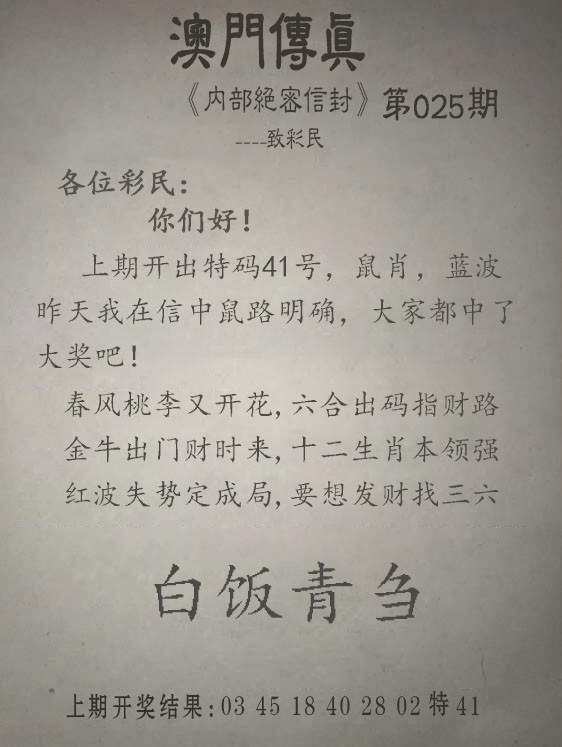 澳門傳眞
《内部絕密信封》第025期
----致彩民
各位彩民：
你们好！
上期开出特码41号，鼠肖，蓝波
昨天我在信中鼠路明确，大家都中了
大奖吧！
春风桃李又开花,六合出码指财路
金牛出门财时来,十二生肖本领强
红波失势定成局,要想发财找三六
白饭青刍
上期开奖结果:03 45 18 40 28 02 特 41